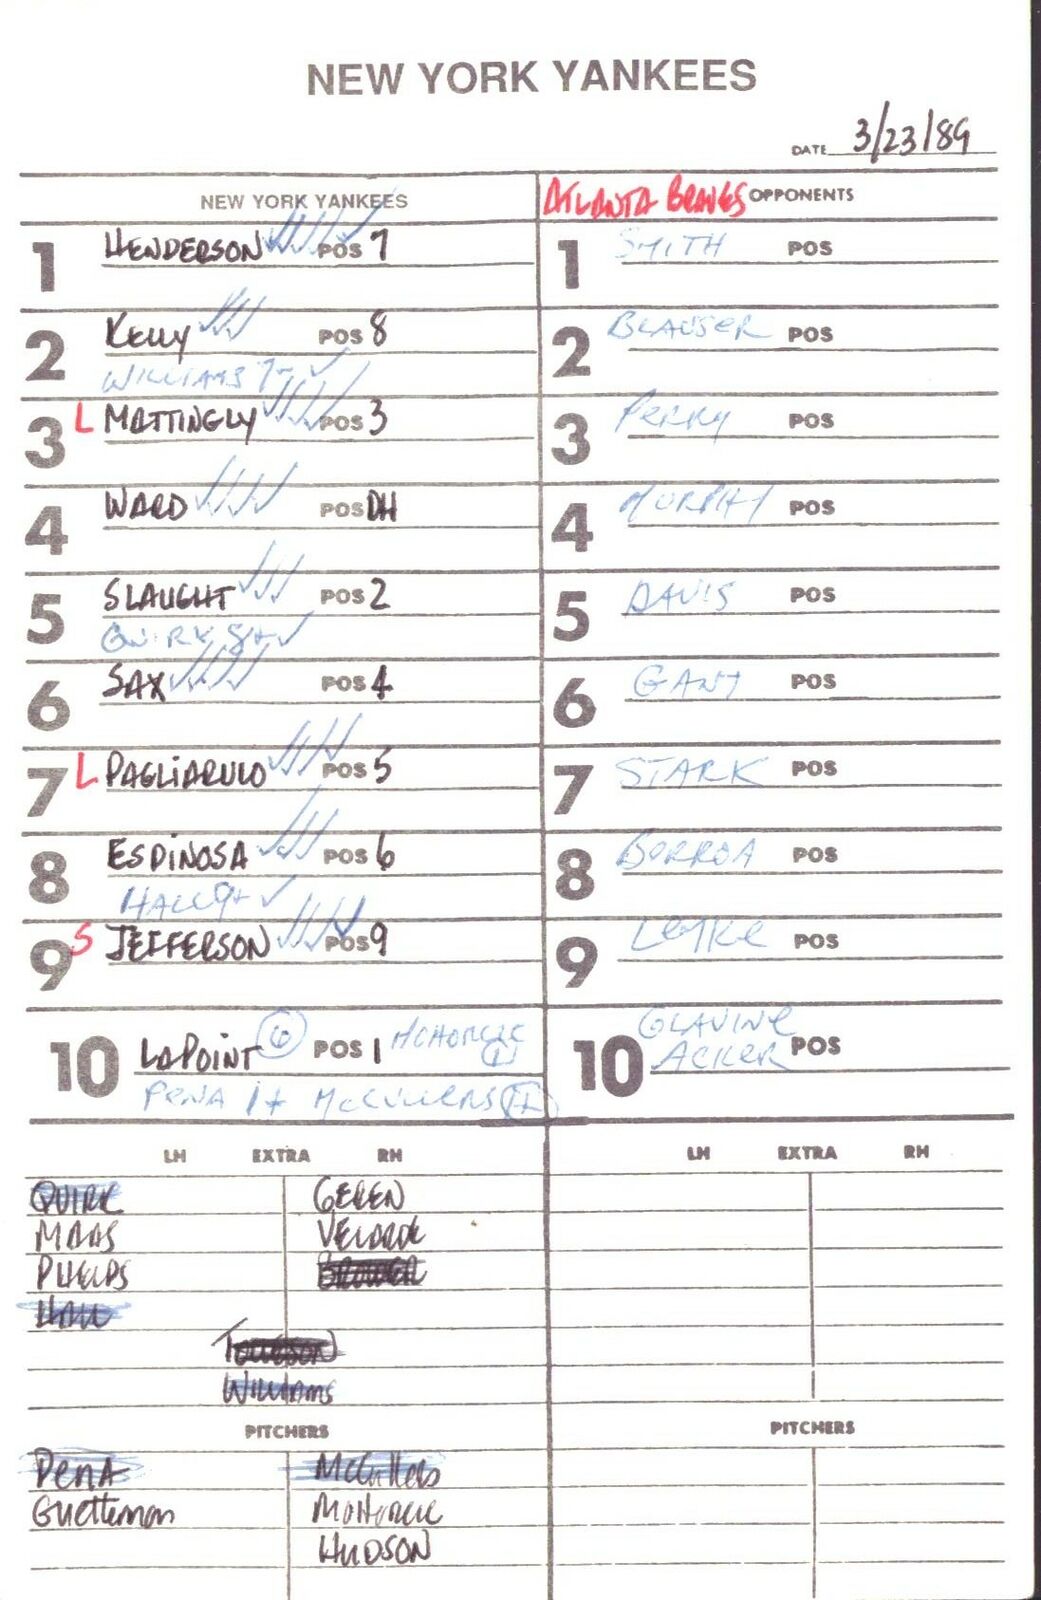 NEW YORK YANKEES
DATE 3/23/89
NEW YORK YANKEES
ATLANTA BRAVES OPPONENTS
1 HENDERSON POS 7
1 SMITH POS
2 KELLY POS 8
WILLIAMS 7+
2 BLAUSER POS
3 L MATTINGLY POS 3
3 PERRY POS
4 WARD POS DH
4 MURPHY POS
5 SLAUGHT POS 2
QUIRK 8+
5 DAVIS POS
6 SAX POS 4
6 GANT POS
7 L PAGLIARULO POS 5
7 STARK POS
8 ESPINOSA POS 6
HALL 9+
8 BORROA POS
9 S JEFFERSON POS 9
9 POS
10 LAPOINT 6 POS 1 MOHORCIC
PENA 1+ McCULLERS
10 GLAVINE
ACKER POS
LH EXTRA RH
LH EXTRA RH
QUIRK GEREN
MAAS VELARDE
PHELPS BROWER
HALL
TOLLESON
WILLIAMS
PITCHERS
PITCHERS
PENA McCullers
Guetterman MOHORCIC
HUDSON